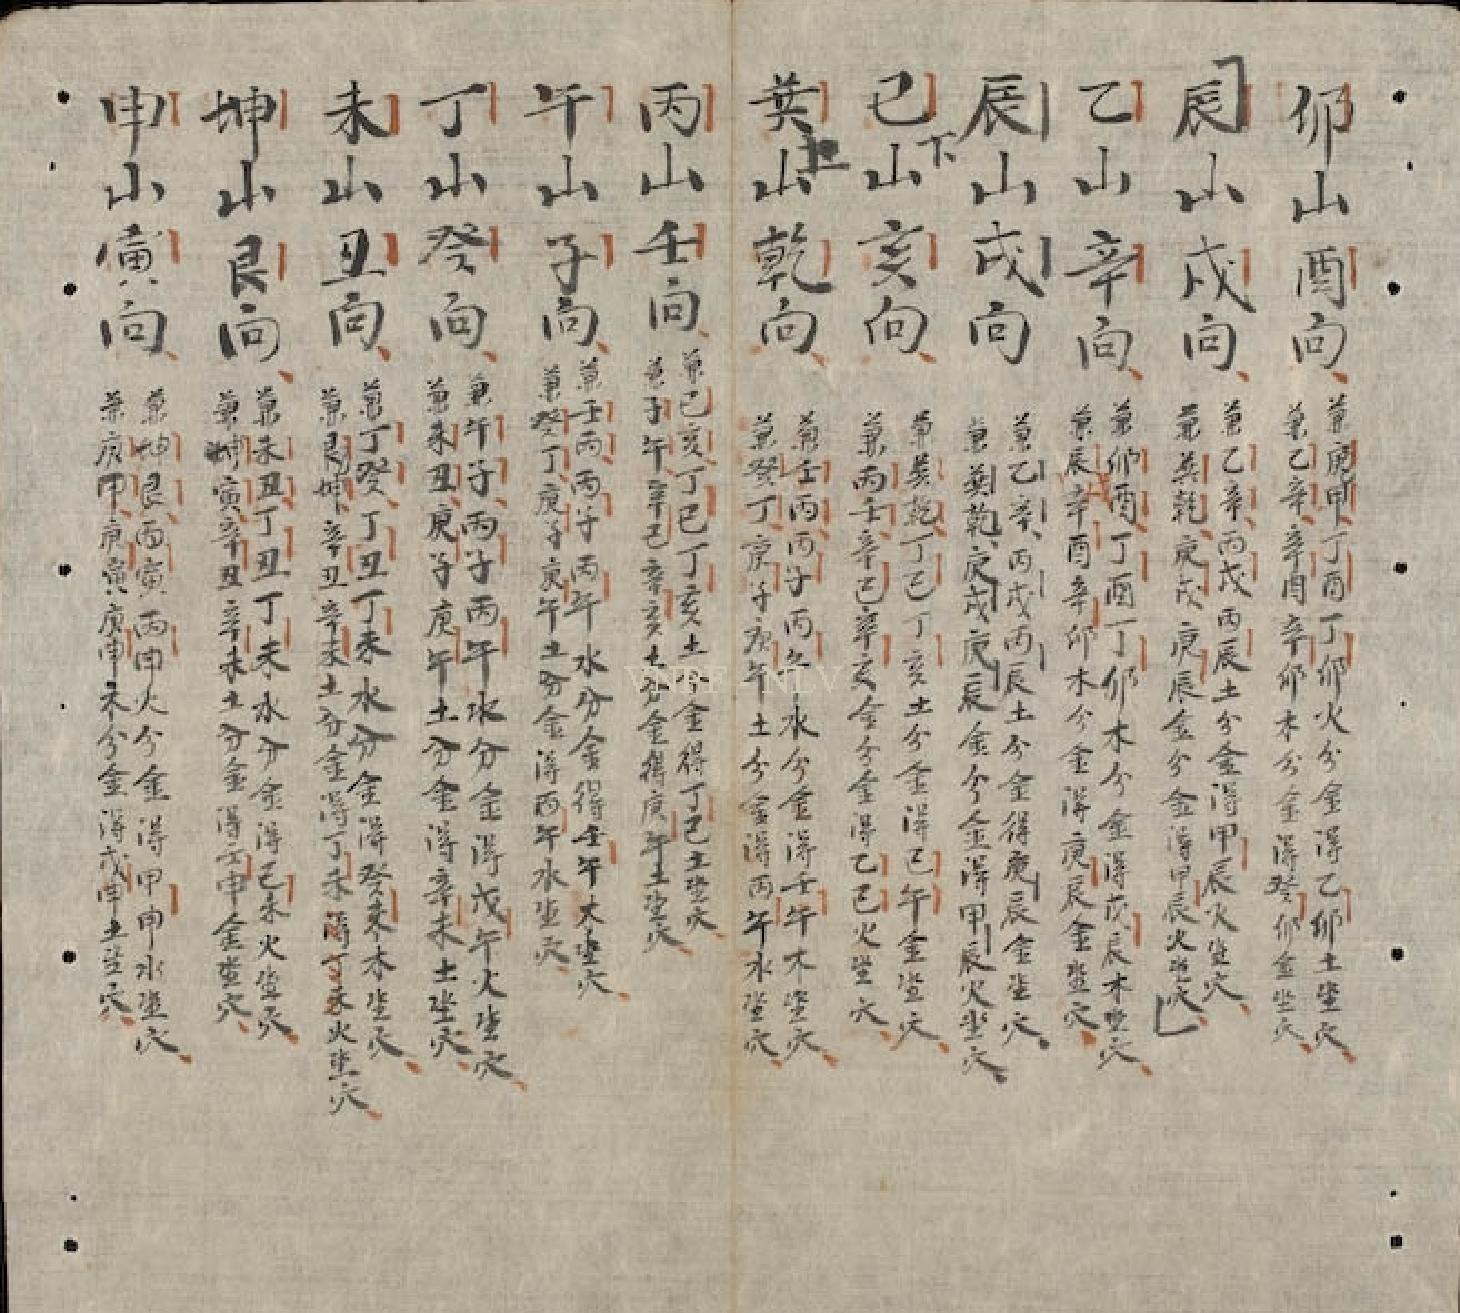 卯山酉向
兼庚甲丁酉丁卯火分金得乙卯土坐穴
兼乙辛辛酉辛卯木分金得癸卯金坐穴
辰山戌向
兼乙辛丙戌丙辰土分金得甲辰火坐穴
兼巽乾庚戌庚辰金分金得甲辰火坐穴
乙山辛向
兼卯酉丁酉丁卯木分金得戊辰木坐穴
兼辰辛酉辛卯木分金得庚辰金坐穴
辰山戌向
兼乙辛丙戌丙辰土分金得庚辰金坐穴
兼巽乾庚戌庚辰金分金得甲辰火坐穴
下
巳山亥向
兼巽乾丁巳丁亥土分金得己午金坐穴
兼丙壬辛巳辛亥金分金得乙巳火坐穴
上
巽山乾向
兼壬丙丙子丙午水分金得壬午木坐穴
兼癸丁庚子庚午土分金得丙午水坐穴
丙山壬向
兼巳亥丁巳丁亥土分金得丁巳土坐穴
兼子午辛巳辛亥土分金得庚午土坐穴
午山子向
兼壬丙丙子丙午水分金得壬午木坐穴
兼癸丁庚子庚午土分金得丙午水坐穴
丁山癸向
兼午子丙子丙午水分金得戊午火坐穴
兼未丑庚子庚午土分金得辛未土坐穴
未山丑向
兼丁癸丁丑丁未水分金得癸未木坐穴
兼艮坤辛丑辛未土分金得丁未得丁未火坐穴
坤山艮向
兼未丑丁丑丁未水分金得己未火坐穴
兼坤寅辛丑辛未土分金得壬申金坐穴
申山寅向
兼坤艮丙寅丙申火分金得甲申水坐穴
兼庚甲庚寅庚申木分金得戊申土坐穴
VNPF NLV